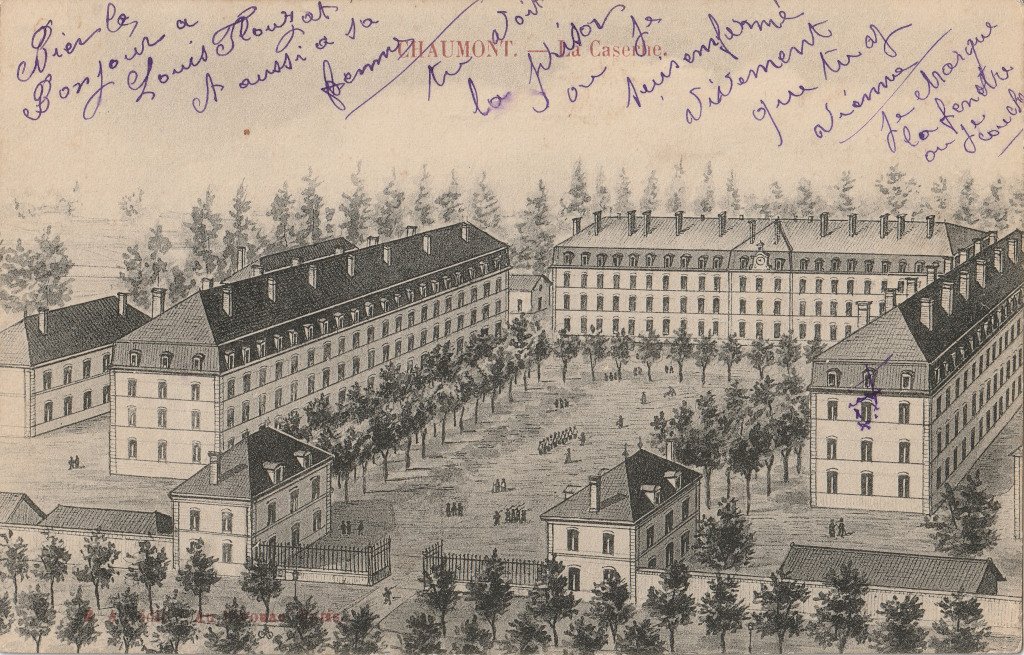 CHAUMONT. — La Caserne.
Bien le
Bonjour a
Louis
et aussi a sa
femme
tu voit
la prison
ou je
suis enfermé
vivement
que tu
vienne
je marque
la fenetre
ou je
couche